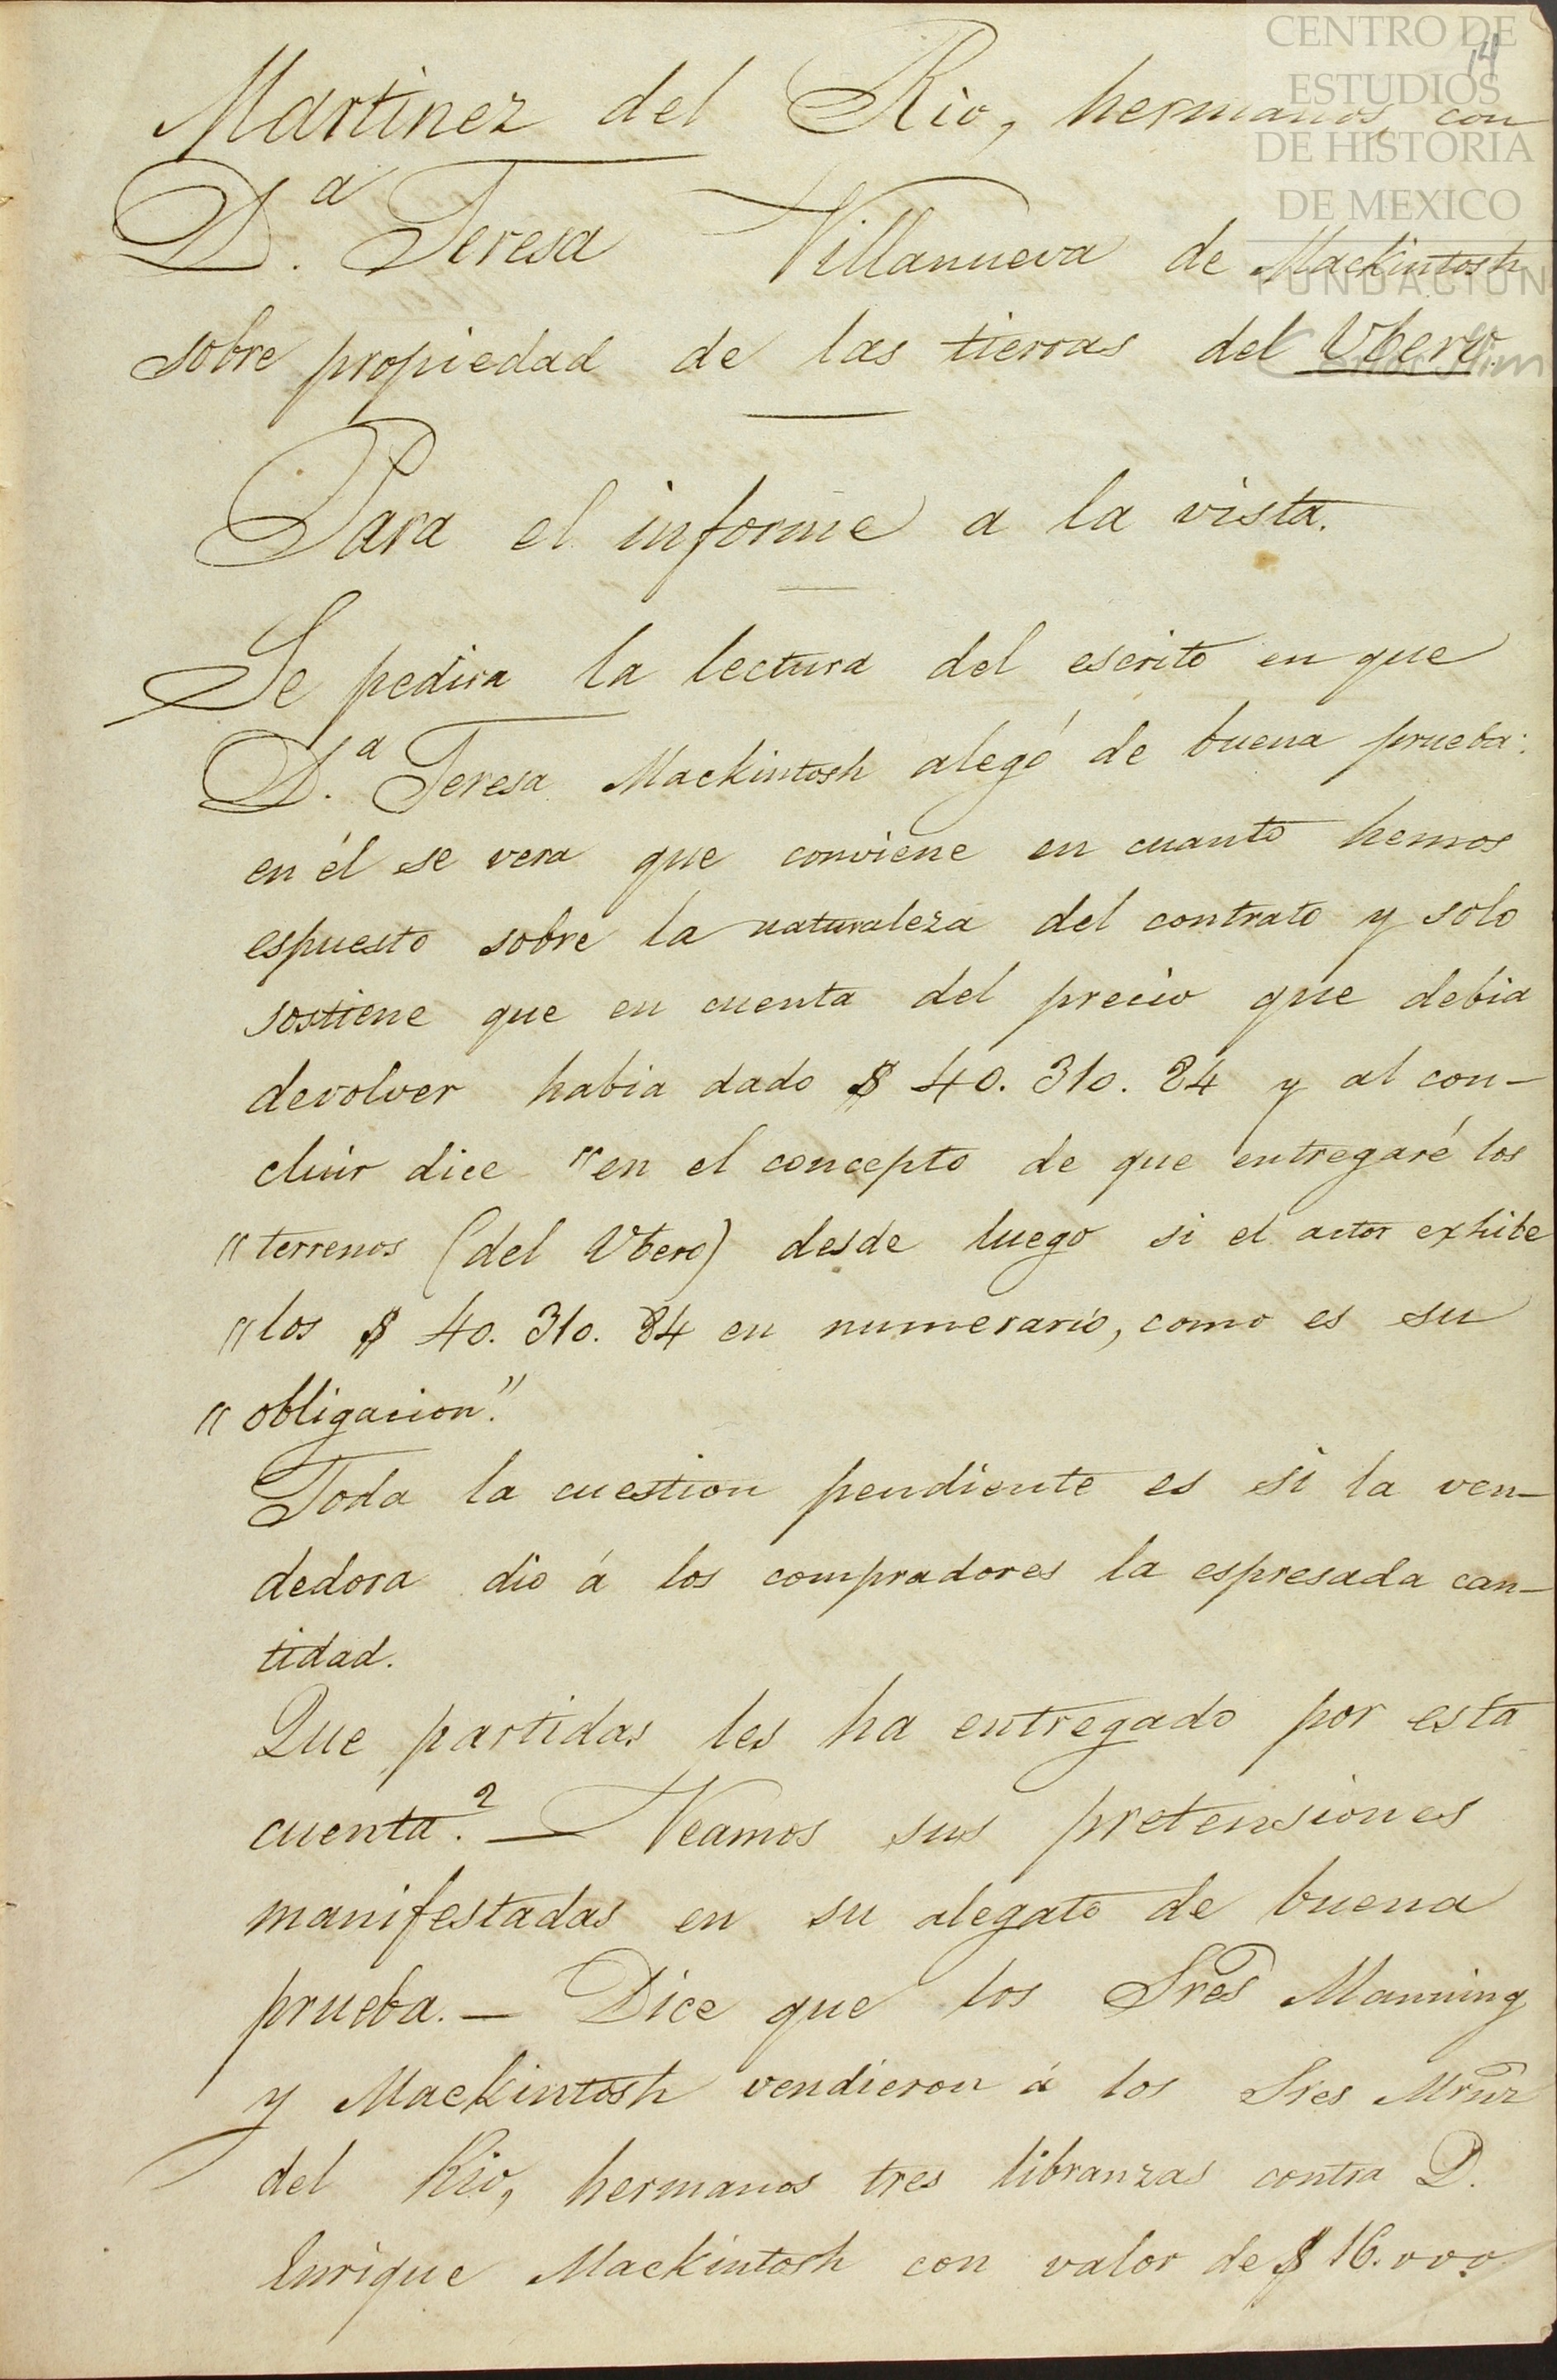 CENTRO DE
ESTUDIOS
DE HISTORIA
DE MEXICO
FUNDACION
Carlos Slim
14
Martinez del Rio, hermanos, con
D.ª Teresa Villanueva de Mackintosh
sobre propiedad de las tierras del Ubero.
Para el informe a la vista.
Se pedira la lectura del escrito en que
D.ª Teresa Mackintosh alegó de buena prueba:
en él se vera que conviene en cuanto hemos
espuesto sobre la naturaleza del contrato y solo
sostiene que en cuenta del precio que debia
devolver habia dado $ 40.310.84 y al con-
cluir dice "en el concepto de que entregaré los
"terrenos (del Ubero) desde luego si el actor exhibe
"los $ 40.310.84 en numerario, como es su
"obligacion."
Toda la cuestion pendiente es si la ven-
dedora dio á los compradores la espresada can-
tidad.
Que partidas les ha entregado por esta
cuenta? — Veamos sus pretensiones
manifestadas en su alegato de buena
prueba. — Dice que los Sres Manning
y Mackintosh vendieron á los Sres Mrnz
del Rio, hermanos tres libranzas contra D.
Enrique Mackintosh con valor de $ 16.000